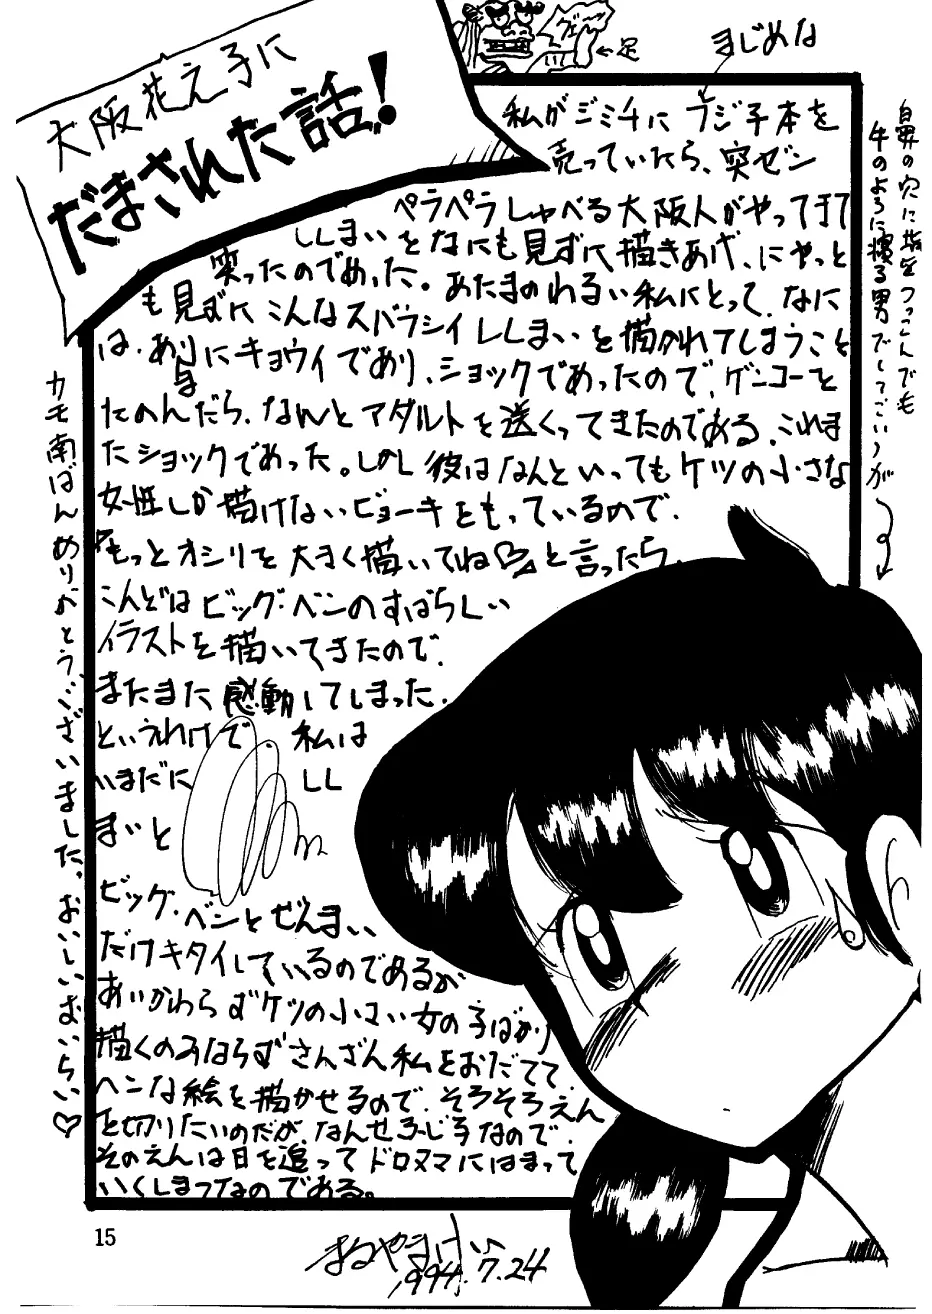 大阪花え子に
だまされた話!
←足
まじめな
私がジミチにフジ子本を
売っていたら、突ゼン
ペラペラしゃべる大阪人がやってきて
ししまいをなにも見ずに描きあげ、にやっと
笑ったのであった。あたまのわるい私にとって、なに
も見ずにこんなスバラシイししまいを描かれてしまうこと
は、あまりにキョウイであり、ショックであったので、ゲンコーを
たのんだら、なんとアダルトを送くってきたのである、これま
たショックであった。しかし彼はなんといってもケツの小さな
女性しか描けないビョーキをもっているので、
『もっとオシリを大きく描いてね♡』と言ったら、
こんどはビッグ・ベンのすばらしい
イラストを描いてきたので、
またまた感動してしまった、
というわけで、私は
いまだにしし
まいと
ビッグ・ベンとぜんまい
だけキタイしているのであるが
あいかわらずケツの小さい女の子ばかり
描くのみならずさんざん私をおだてて、
ヘンな絵を描かせるので、そろそろえん
を切りたいのだが、なんせふじ子なので、
そのえんは日を追ってドロヌマにはまって
いくしまつなのである。
鼻の穴に指をつっこんでも
牛のように寝る男でしてございますが
カモ南ばんありがとうございました、おいしいおいらい♡
15
まるやまけい
1994.7.24